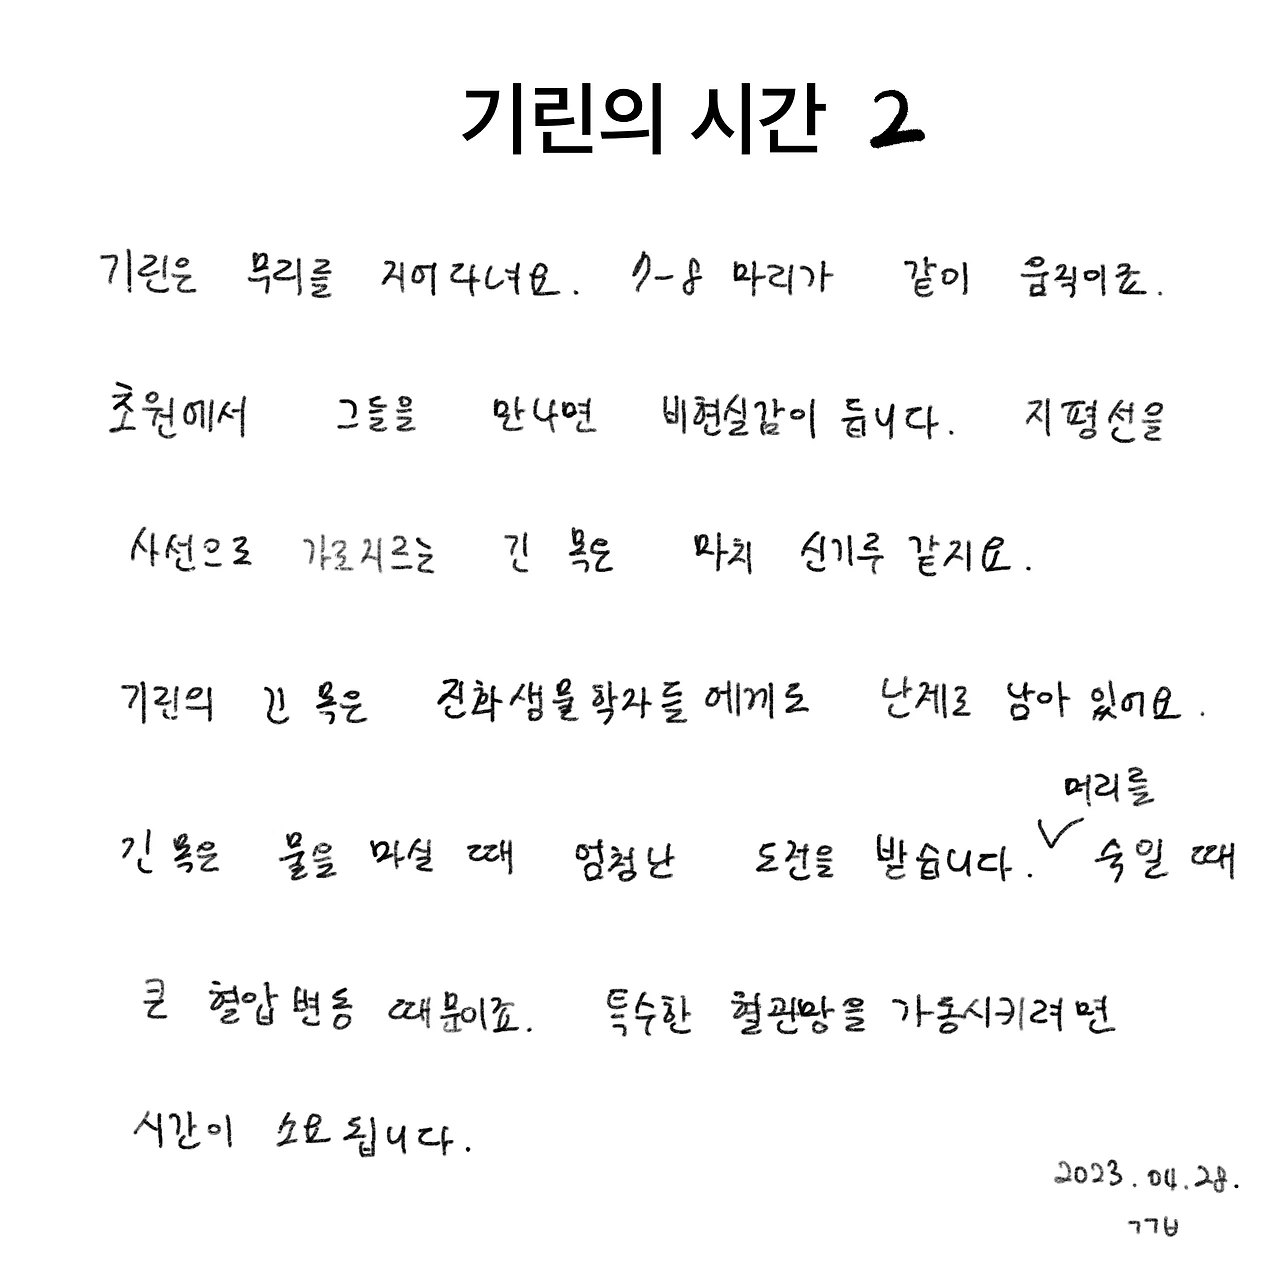 기린의 시간 2
기린은 무리를 지어 다녀요. 7-8 마리가 같이 움직이죠.
초원에서 그들을 만나면 비현실감이 듭니다. 지평선을
사선으로 가로지르는 긴 목은 마치 신기루 같지요.
기린의 긴 목은 진화생물학자들에게도 난제로 남아 있어요.
머리를
긴 목은 물을 마실 때 엄청난 도전을 받습니다. 숙일 때
큰 혈압 변동 때문이죠. 특수한 혈관망을 가동시키려면
시간이 소요됩니다.
2023.04.28.
ㄱㄱㅂ